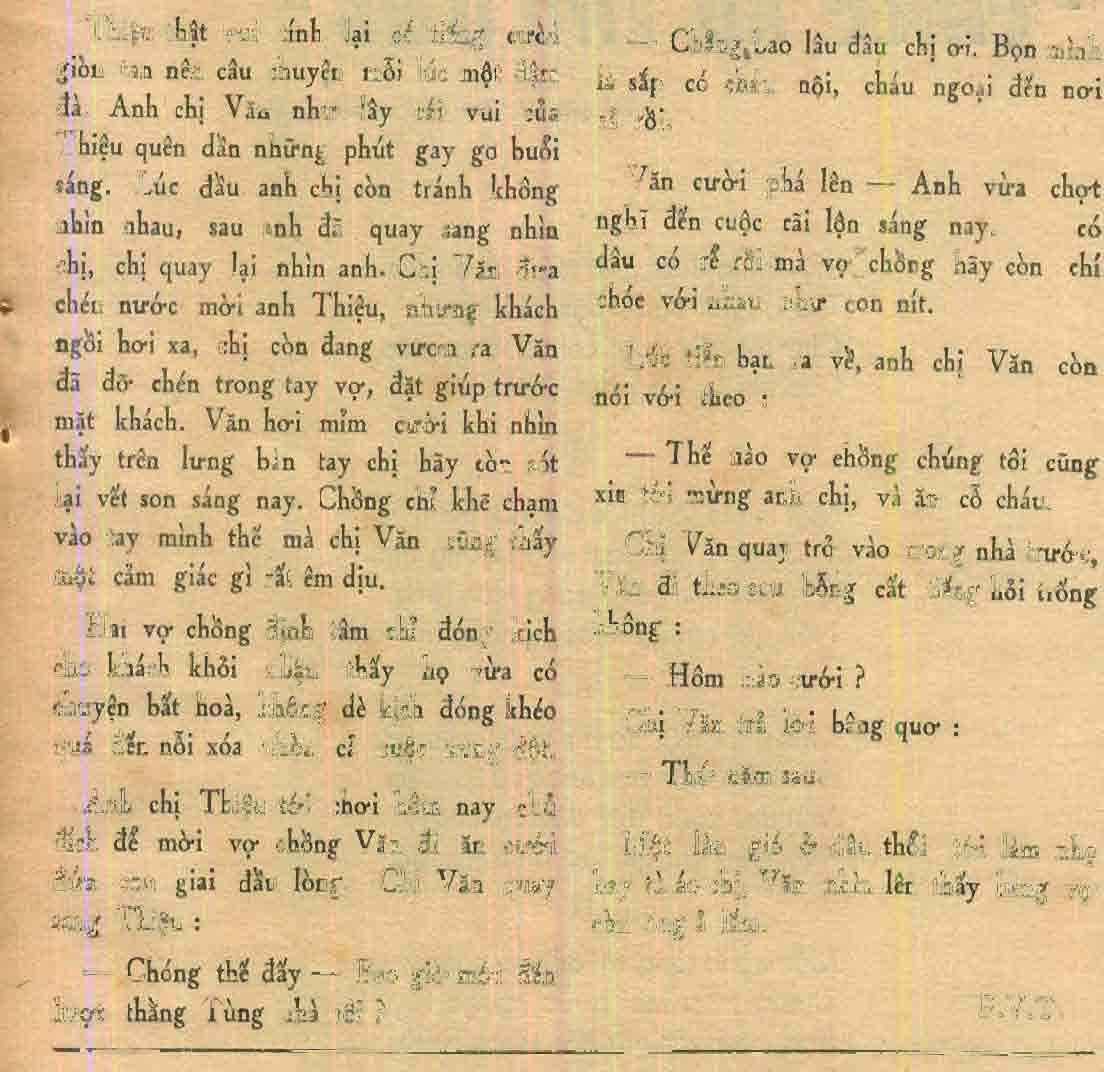 Thiệu thật vui tính lại có tiếng cười
giòn tan nên câu chuyện mỗi lúc một đậm
đà. Anh chị Văn như lây cái vui của
Thiệu quên dần những phút gay go buổi
sáng. Lúc đầu anh chị còn tránh không
nhìn nhau, sau anh đã quay sang nhìn
chị, chị quay lại nhìn anh. Chị Văn đưa
chén nước mời anh Thiệu, nhưng khách
ngồi hơi xa, chị còn đang vươn ra Văn
đã đỡ chén trong tay vợ, đặt giúp trước
mặt khách. Văn hơi mỉm cười khi nhìn
thấy trên lưng bàn tay chị hãy còn sót
lại vết son sáng nay. Chồng chỉ khẽ chạm
vào tay mình thế mà chị Văn cũng thấy
một cảm giác gì rất êm dịu.
Hai vợ chồng định tâm chỉ đóng kịch
cho khách khỏi nhận thấy họ vừa có
chuyện bất hoà, không dè kịch đóng khéo
quá đến nỗi xóa nhòa cả cuộc xung đột.
Anh chị Thiệu tới chơi hôm nay chủ
đích để mời vợ chồng Văn đi ăn cưới
đứa con giai đầu lòng. Chị Văn quay
sang Thiệu :
— Chóng thế đấy — Bao giờ mới đến
lượt thằng Tùng nhà tôi ?
— Chẳng bao lâu đâu chị ơi. Bọn mình
là sắp có cháu nội, cháu ngoại đến nơi
cả rồi.
Văn cười phá lên — Anh vừa chợt
nghĩ đến cuộc cãi lộn sáng nay. có
dâu có rể rồi mà vợ chồng hãy còn chí
chóe với nhau như con nít.
Lúc tiễn bạn ra về, anh chị Văn còn
nói với theo :
— Thế nào vợ chồng chúng tôi cũng
xin tới mừng anh chị, và ăn cỗ cháu.
Chị Văn quay trở vào trong nhà trước,
Văn đi theo sau bỗng cất tiếng hỏi trống
không :
— Hôm nào cưới ?
Chị Văn trả lời bâng quơ :
— Thứ năm sau.
Một làn gió ở đâu thổi tới làm nhẹ
bay tà áo chị. Văn nhìn lên thấy hang vợ
còn óng ả lắm.